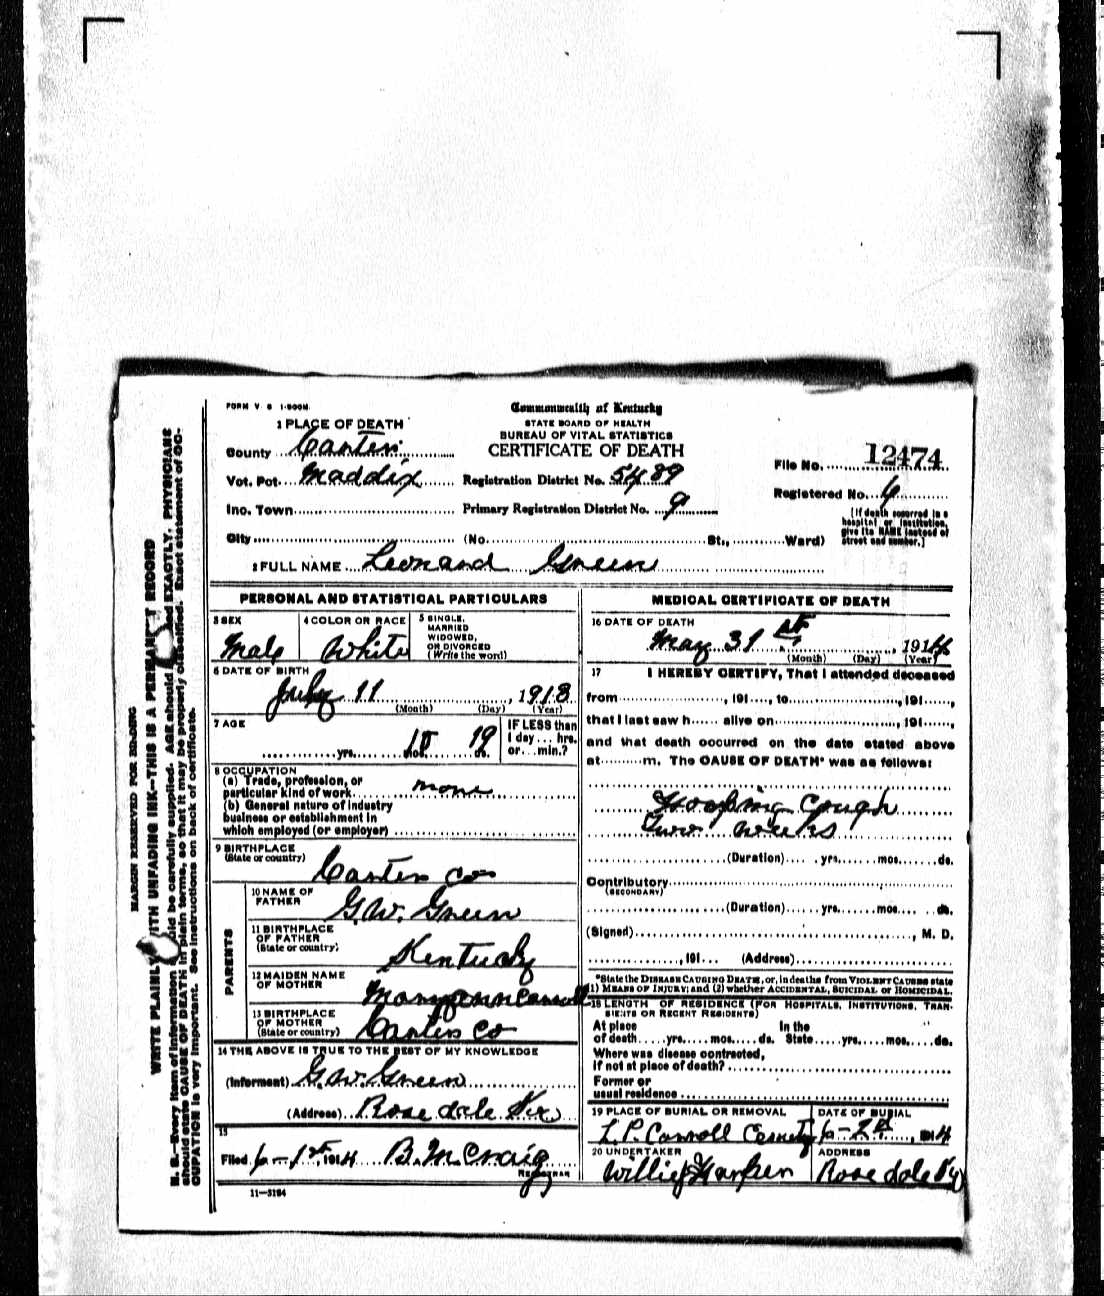 FORM V. S 1-500M.
Commonwealth of Kentucky
STATE BOARD OF HEALTH
BUREAU OF VITAL STATISTICS
CERTIFICATE OF DEATH
1 PLACE OF DEATH
County Carter
Vot. Pct. Maddix
Inc. Town
City (No. St., Ward)
Registration District No. 5489
Primary Registration District No. 9
File No. 12474
Registered No. 6
[If death occurred in a
hospital or institution,
give its NAME instead of
street and number.]
2 FULL NAME Leonard Green
PERSONAL AND STATISTICAL PARTICULARS
3 SEX
Male
4 COLOR OR RACE
White
5 SINGLE,
MARRIED
WIDOWED,
OR DIVORCED
(Write the word)
6 DATE OF BIRTH
July 11, 1913
(Month) (Day) (Year)
7 AGE
yrs. 10 mos. 19 ds.
IF LESS than
1 day... hrs.
or... min.?
8 OCCUPATION
(a) Trade, profession, or
particular kind of work none
(b) General nature of industry
business or establishment in
which employed (or employer)
9 BIRTHPLACE
(State or country)
Carter Co
PARENTS
10 NAME OF
FATHER
G.W. Green
11 BIRTHPLACE
OF FATHER
(State or country)
Kentucky
12 MAIDEN NAME
OF MOTHER
Mary Ann Carroll
13 BIRTHPLACE
OF MOTHER
(State or country)
Carter Co
14 THE ABOVE IS TRUE TO THE BEST OF MY KNOWLEDGE
(Informant) G.W. Green
(Address) Rose dale Ky
15
Filed 6-1st, 1914 B.M. Craig
REGISTRAR
11-3184
MEDICAL CERTIFICATE OF DEATH
16 DATE OF DEATH
May 31 st, 1914
(Month) (Day) (Year)
17 I HEREBY CERTIFY, That I attended deceased
from, 191, to, 191,
that I last saw h alive on, 191,
and that death occurred on the date stated above
at m. The CAUSE OF DEATH* was as follows:
Hooping Cough
Two weeks
(Duration) yrs. mos. ds.
Contributory
(SECONDARY)
(Duration) yrs. mos. ds.
(Signed), M. D.
, 191 (Address)
*State the DISEASE CAUSING DEATH, or, in deaths from VIOLENT CAUSES state
(1) MEANS OF INJURY; and (2) whether ACCIDENTAL, SUICIDAL or HOMICIDAL.
18 LENGTH OF RESIDENCE (FOR HOSPITALS, INSTITUTIONS, TRAN-
SIENTS OR RECENT RESIDENTS)
At place In the
of death yrs. mos. ds. State yrs. mos. ds.
Where was disease contracted,
if not at place of death?
Former or
usual residence
19 PLACE OF BURIAL OR REMOVAL
L.P. Carroll Cemetery
DATE OF BURIAL
6-2d, 1914
20 UNDERTAKER
Willie
ADDRESS
Rose dale Ky
MARGIN RESERVED FOR BINDING
WRITE PLAINLY WITH UNFADING INK—THIS IS A PERMANENT RECORD
N. B.—Every item of information should be carefully supplied. AGE should be stated EXACTLY. PHYSICIANS
should state CAUSE OF DEATH in plain terms, so that it may be properly classified. Exact statement of OC-
CUPATION is very important. See instructions on back of certificate.